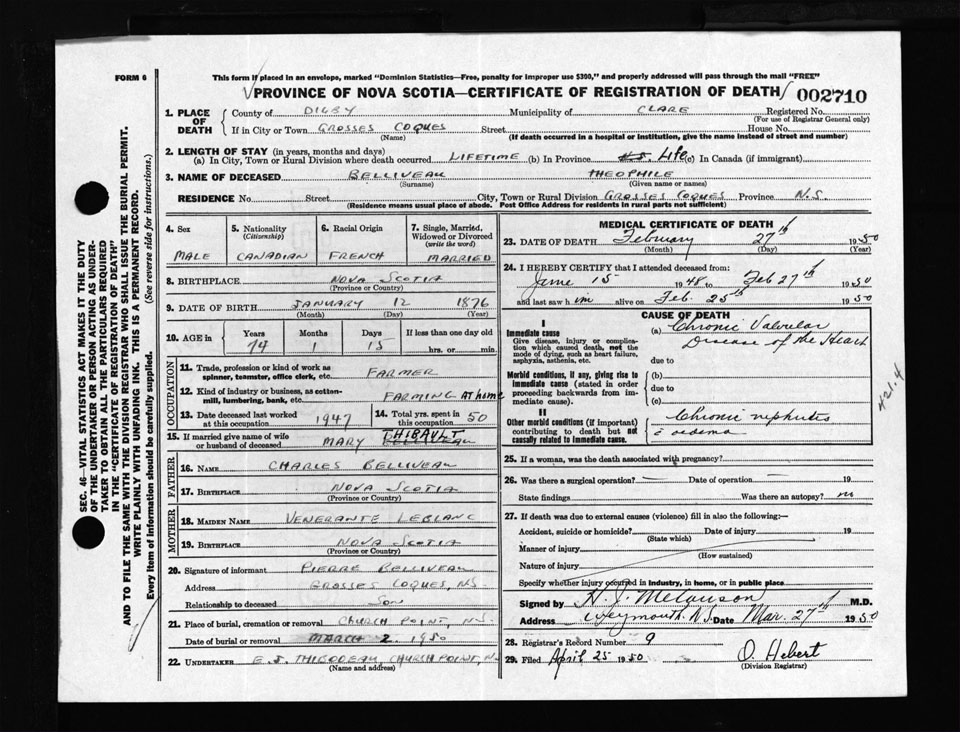 FORM 6
This form if placed in an envelope, marked "Dominion Statistics—Free, penalty for improper use $300," and properly addressed will pass through the mail "FREE"
PROVINCE OF NOVA SCOTIA—CERTIFICATE OF REGISTRATION OF DEATH 002710
SEC. 46—VITAL STATISTICS ACT MAKES IT THE DUTY
OF THE UNDERTAKER OR PERSON ACTING AS UNDER-
TAKER TO OBTAIN ALL THE PARTICULARS REQUIRED
IN THE "CERTIFICATE OF REGISTRATION OF DEATH"
AND TO FILE THE SAME WITH THE DIVISION REGISTRAR WHO SHALL ISSUE THE BURIAL PERMIT.
WRITE PLAINLY WITH UNFADING INK. THIS IS A PERMANENT RECORD.
Every item of information should be carefully supplied. (See reverse side for instructions.)
1. PLACE OF DEATH
County of DIGBY Municipality of CLARE Registered No.
(For use of Registrar General only)
If in City or Town GROSSES COQUES Street House No.
(Name) (If death occurred in a hospital or institution, give the name instead of street and number)
2. LENGTH OF STAY (in years, months and days)
(a) In City, Town or Rural Division where death occurred LIFETIME (b) In Province Life (c) In Canada (if immigrant)
3. NAME OF DECEASED BELLIVEAU THEOPHILE
(Surname) (Given name or names)
RESIDENCE No Street City, Town or Rural Division GROSSES COQUES Province N.S.
(Residence means usual place of abode. Post Office Address for residents in rural parts not sufficient)
4. Sex MALE
5. Nationality (Citizenship) CANADIAN
6. Racial Origin FRENCH
7. Single, Married, Widowed or Divorced (write the word) MARRIED
8. BIRTHPLACE NOVA SCOTIA
(Province or Country)
9. DATE OF BIRTH JANUARY 12 1876
(Month) (Day) (Year)
10. AGE in Years Months Days If less than one day old
74 1 15 hrs. or min.
OCCUPATION
11. Trade, profession or kind of work as FARMER
spinner, teamster, office clerk, etc.
12. Kind of industry or business, as cotton- FARMING AT home
mill, lumbering, bank, etc.
13. Date deceased last worked at this occupation 1947
14. Total yrs. spent in this occupation 50
15. If married give name of wife or husband of deceased MARY THIBAULT
FATHER
16. NAME CHARLES BELLIVEAU
17. BIRTHPLACE NOVA SCOTIA
(Province or Country)
MOTHER
18. MAIDEN NAME VENERANTE LEBLANC
19. BIRTHPLACE NOVA SCOTIA
(Province or Country)
20. Signature of informant PIERRE BELLIVEAU
Address GROSSES COQUES, N.S.
Relationship to deceased SON
21. Place of burial, cremation or removal CHURCH POINT, N.S.
Date of burial or removal MARCH 2. 1950
22. UNDERTAKER E. J. THIBODEAU CHURCH POINT, N.S
(Name and address)
MEDICAL CERTIFICATE OF DEATH
23. DATE OF DEATH February 27th 1950
(Month) (Day) (Year)
24. I HEREBY CERTIFY that I attended deceased from:
June 15 1948 to Feb 27th 1950
and last saw him alive on Feb. 25th 1950
CAUSE OF DEATH
I
Immediate cause (a) Chronic Valvular
Give disease, injury or complication which caused death, not the mode of dying, such as heart failure, asphyxia, asthenia, etc. Disease of the Heart
due to
Morbid conditions, if any, giving rise to immediate cause (stated in order proceeding backwards from immediate cause). (b)
due to
(c)
421.4
II
Other morbid conditions (if important) contributing to death but not causally related to immediate cause. Chronic nephritis
c̄ oedema
25. If a woman, was the death associated with pregnancy?
26. Was there a surgical operation? — Date of operation — 19
State findings Was there an autopsy? no
27. If death was due to external causes (violence) fill in also the following:—
Accident, suicide or homicide? Date of injury 19
(State which)
Manner of injury
(How sustained)
Nature of injury
Specify whether injury occurred in industry, in home, or in public place
Signed by H. J. Melanson M.D.
Address Weymouth N.S. Date Mar. 27th 1950
28. Registrar's Record Number 9
29. Filed April 25 1950 O. Hebert
(Division Registrar)